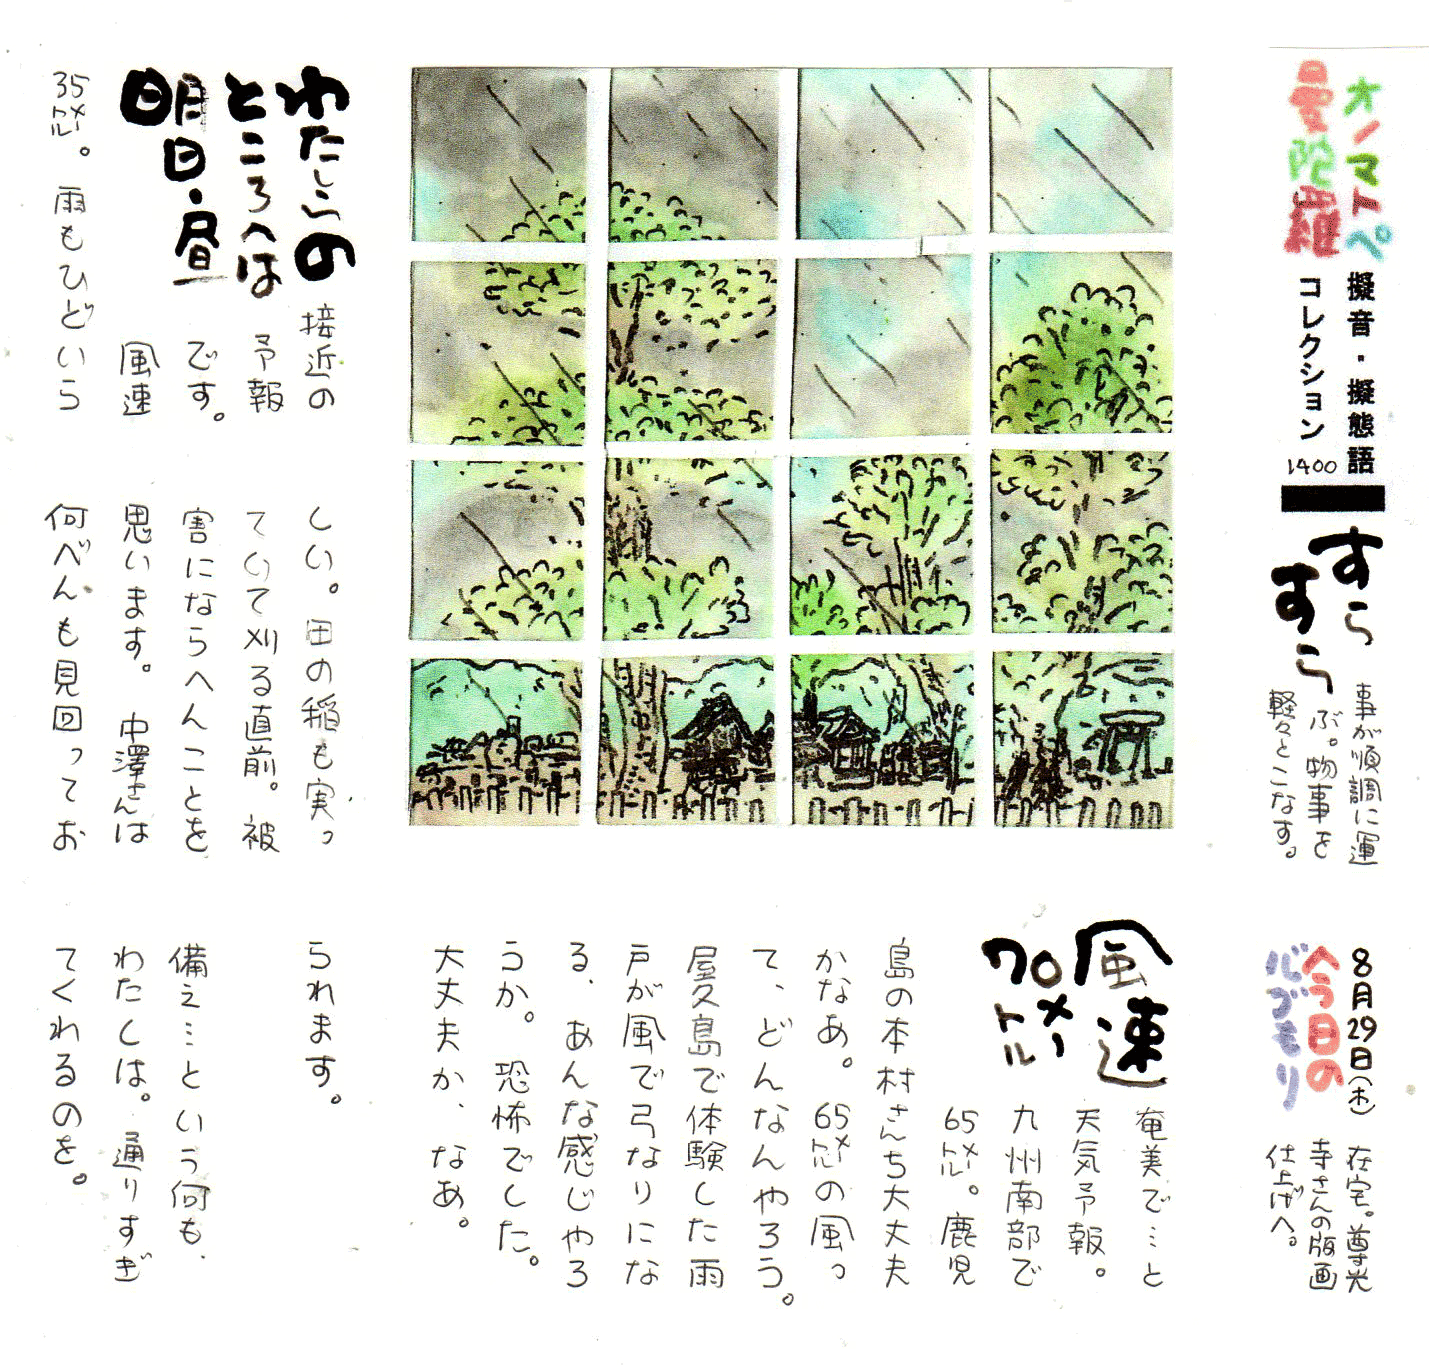 オノマトペ
曼陀羅
擬音・擬態語
コレクション
1400
すら
すら
事が順調に運
ぶ。物事を
軽々とこなす。
8月29日(木)
今日の
心づもり
在宅。尊光
寺さんの版画
仕上げへ。
風速
70メートル
奄美で…と
天気予報。
九州南部で
65メートル。鹿児
島の本村さんち大丈夫
かなあ。65メートルの風っ
て、どんなんやろう。
屋久島で体験した雨
戸が風で弓なりにな
る、あんな感じやろ
うか。恐怖でした。
大丈夫か、なあ。
わたしの
ところへは
明日・昼
接近の
予報
です。
風速
35メートル。雨もひどいら
しい。田の稲も実っ
ていて刈る直前。被
害にならへんことを
思います。中澤さんは
何べんも見回ってお
られます。
備え…という何も、
わたしは。通りすぎ
てくれるのを。